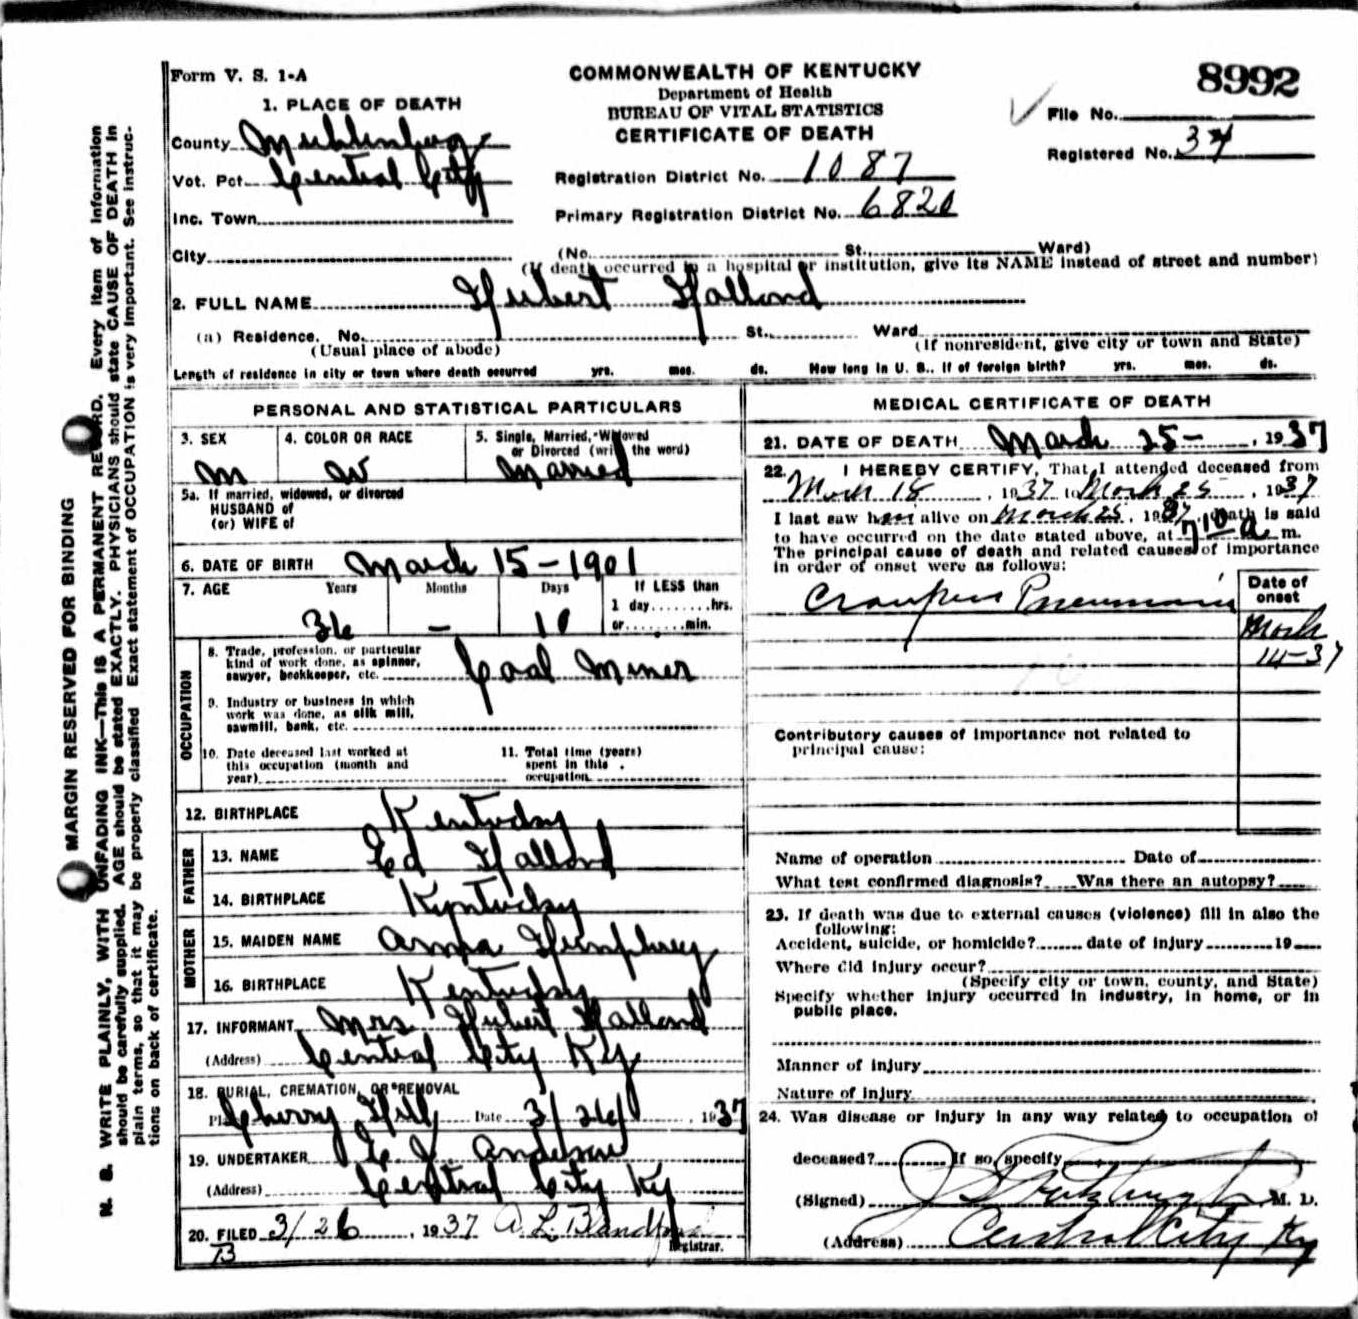 Form V. S. 1-A
COMMONWEALTH OF KENTUCKY
Department of Health
BUREAU OF VITAL STATISTICS
CERTIFICATE OF DEATH
8992
File No.
Registered No. 34
1. PLACE OF DEATH
County Muhlenberg
Vot. Pct. Central City
Inc. Town
City
Registration District No. 1087
Primary Registration District No. 6820
(No. St., Ward)
(If death occurred in a hospital or institution, give its NAME instead of street and number)
2. FULL NAME Hubert Holland
(a) Residence. No. St., Ward
(Usual place of abode) (If nonresident, give city or town and State)
Length of residence in city or town where death occurred yrs. mos. ds. How long in U. S., if of foreign birth? yrs. mos. ds.
PERSONAL AND STATISTICAL PARTICULARS
3. SEX M
4. COLOR OR RACE W
5. Single, Married, Widowed
or Divorced (write the word)
Married
5a. If married, widowed, or divorced
HUSBAND of
(or) WIFE of
6. DATE OF BIRTH March 15-1901
7. AGE Years Months Days If LESS than
1 day........hrs.
or........min.
36 - 10
OCCUPATION
8. Trade, profession, or particular
kind of work done, as spinner,
sawyer, bookkeeper, etc. Coal Miner
9. Industry or business in which
work was done, as silk mill,
sawmill, bank, etc.
10. Date deceased last worked at
this occupation (month and
year)
11. Total time (years)
spent in this
occupation
12. BIRTHPLACE Kentucky
FATHER
13. NAME Ed Holland
14. BIRTHPLACE Kentucky
MOTHER
15. MAIDEN NAME Humphrey
16. BIRTHPLACE Kentucky
17. INFORMANT Mrs Hubert Holland
(Address) Central City Ky
18. BURIAL, CREMATION, OR REMOVAL
Place Cherry Hill Date 3/26, 1937
19. UNDERTAKER Anderson
(Address) Central City Ky
20. FILED 3/26, 1937 A. L. Blandford
Registrar.
B
MEDICAL CERTIFICATE OF DEATH
21. DATE OF DEATH March 25-, 1937
22. I HEREBY CERTIFY, That I attended deceased from
March 18, 1937 to March 25, 1937
I last saw him alive on March 25, 1937, death is said
to have occurred on the date stated above, at 7 10 a m.
The principal cause of death and related causes of importance
in order of onset were as follows:
Date of
onset
Croupous Pneumonia March
14-37
Contributory causes of importance not related to
principal cause:
Name of operation Date of
What test confirmed diagnosis? Was there an autopsy?
23. If death was due to external causes (violence) fill in also the
following:
Accident, suicide, or homicide? date of injury 19
Where did injury occur?
(Specify city or town, county, and State)
Specify whether injury occurred in industry, in home, or in
public place.
Manner of injury
Nature of injury
24. Was disease or injury in any way related to occupation of
deceased? If so, specify
(Signed) M. D.
(Address) Central City Ky
MARGIN RESERVED FOR BINDING
N. B. WRITE PLAINLY, WITH UNFADING INK—This IS A PERMANENT RECORD. Every item of information
should be carefully supplied. AGE should be stated EXACTLY. PHYSICIANS should state CAUSE OF DEATH in
plain terms, so that it may be properly classified. Exact statement of OCCUPATION is very important. See instruc-
tions on back of certificate.